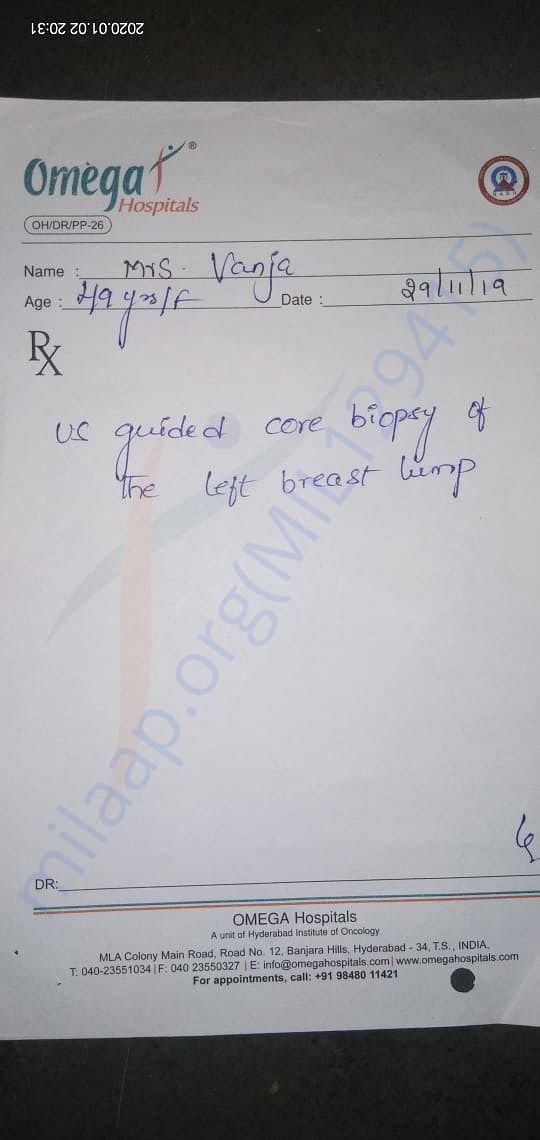 2020.01.02 20:31
Omega ®
Hospitals
OH/DR/PP-26
Name : Mrs. Vanja
Age : 49 yrs/F Date : 29/11/19
Rx
US guided core biopsy of
the left breast lump
milaap.org(MIL129415)
DR:
OMEGA Hospitals
A unit of Hyderabad Institute of Oncology
MLA Colony Main Road, Road No. 12, Banjara Hills, Hyderabad - 34, T.S., INDIA.
T: 040-23551034 | F: 040 23550327 | E: info@omegahospitals.com | www.omegahospitals.com
For appointments, call: +91 98480 11421